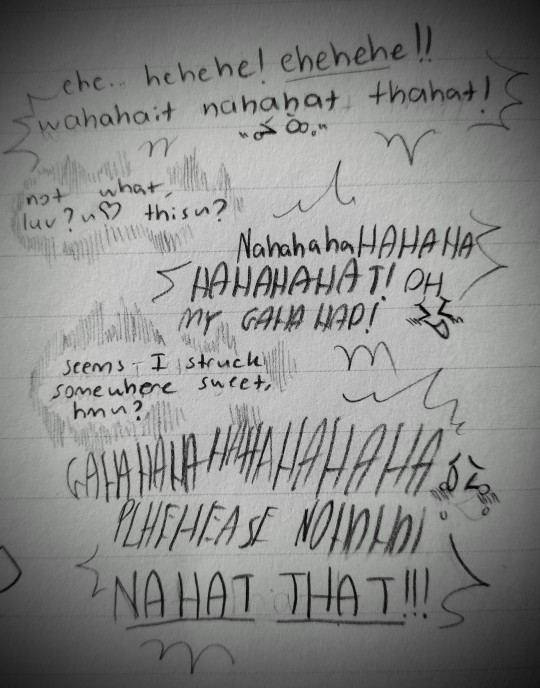 ehe... hehehe! ehehehe!!
wahahait nahahat thahat!
not what,
luv? ♡ this?
NahahahaHAHAHA
HAHAHAHAT! OH
MY GAHAHAD!
seems I struck
somewhere sweet,
hmn?
GAHAHAHAHAHAHAHAHAHA
PLHEHEASE NO
NAHAT THAT!!!